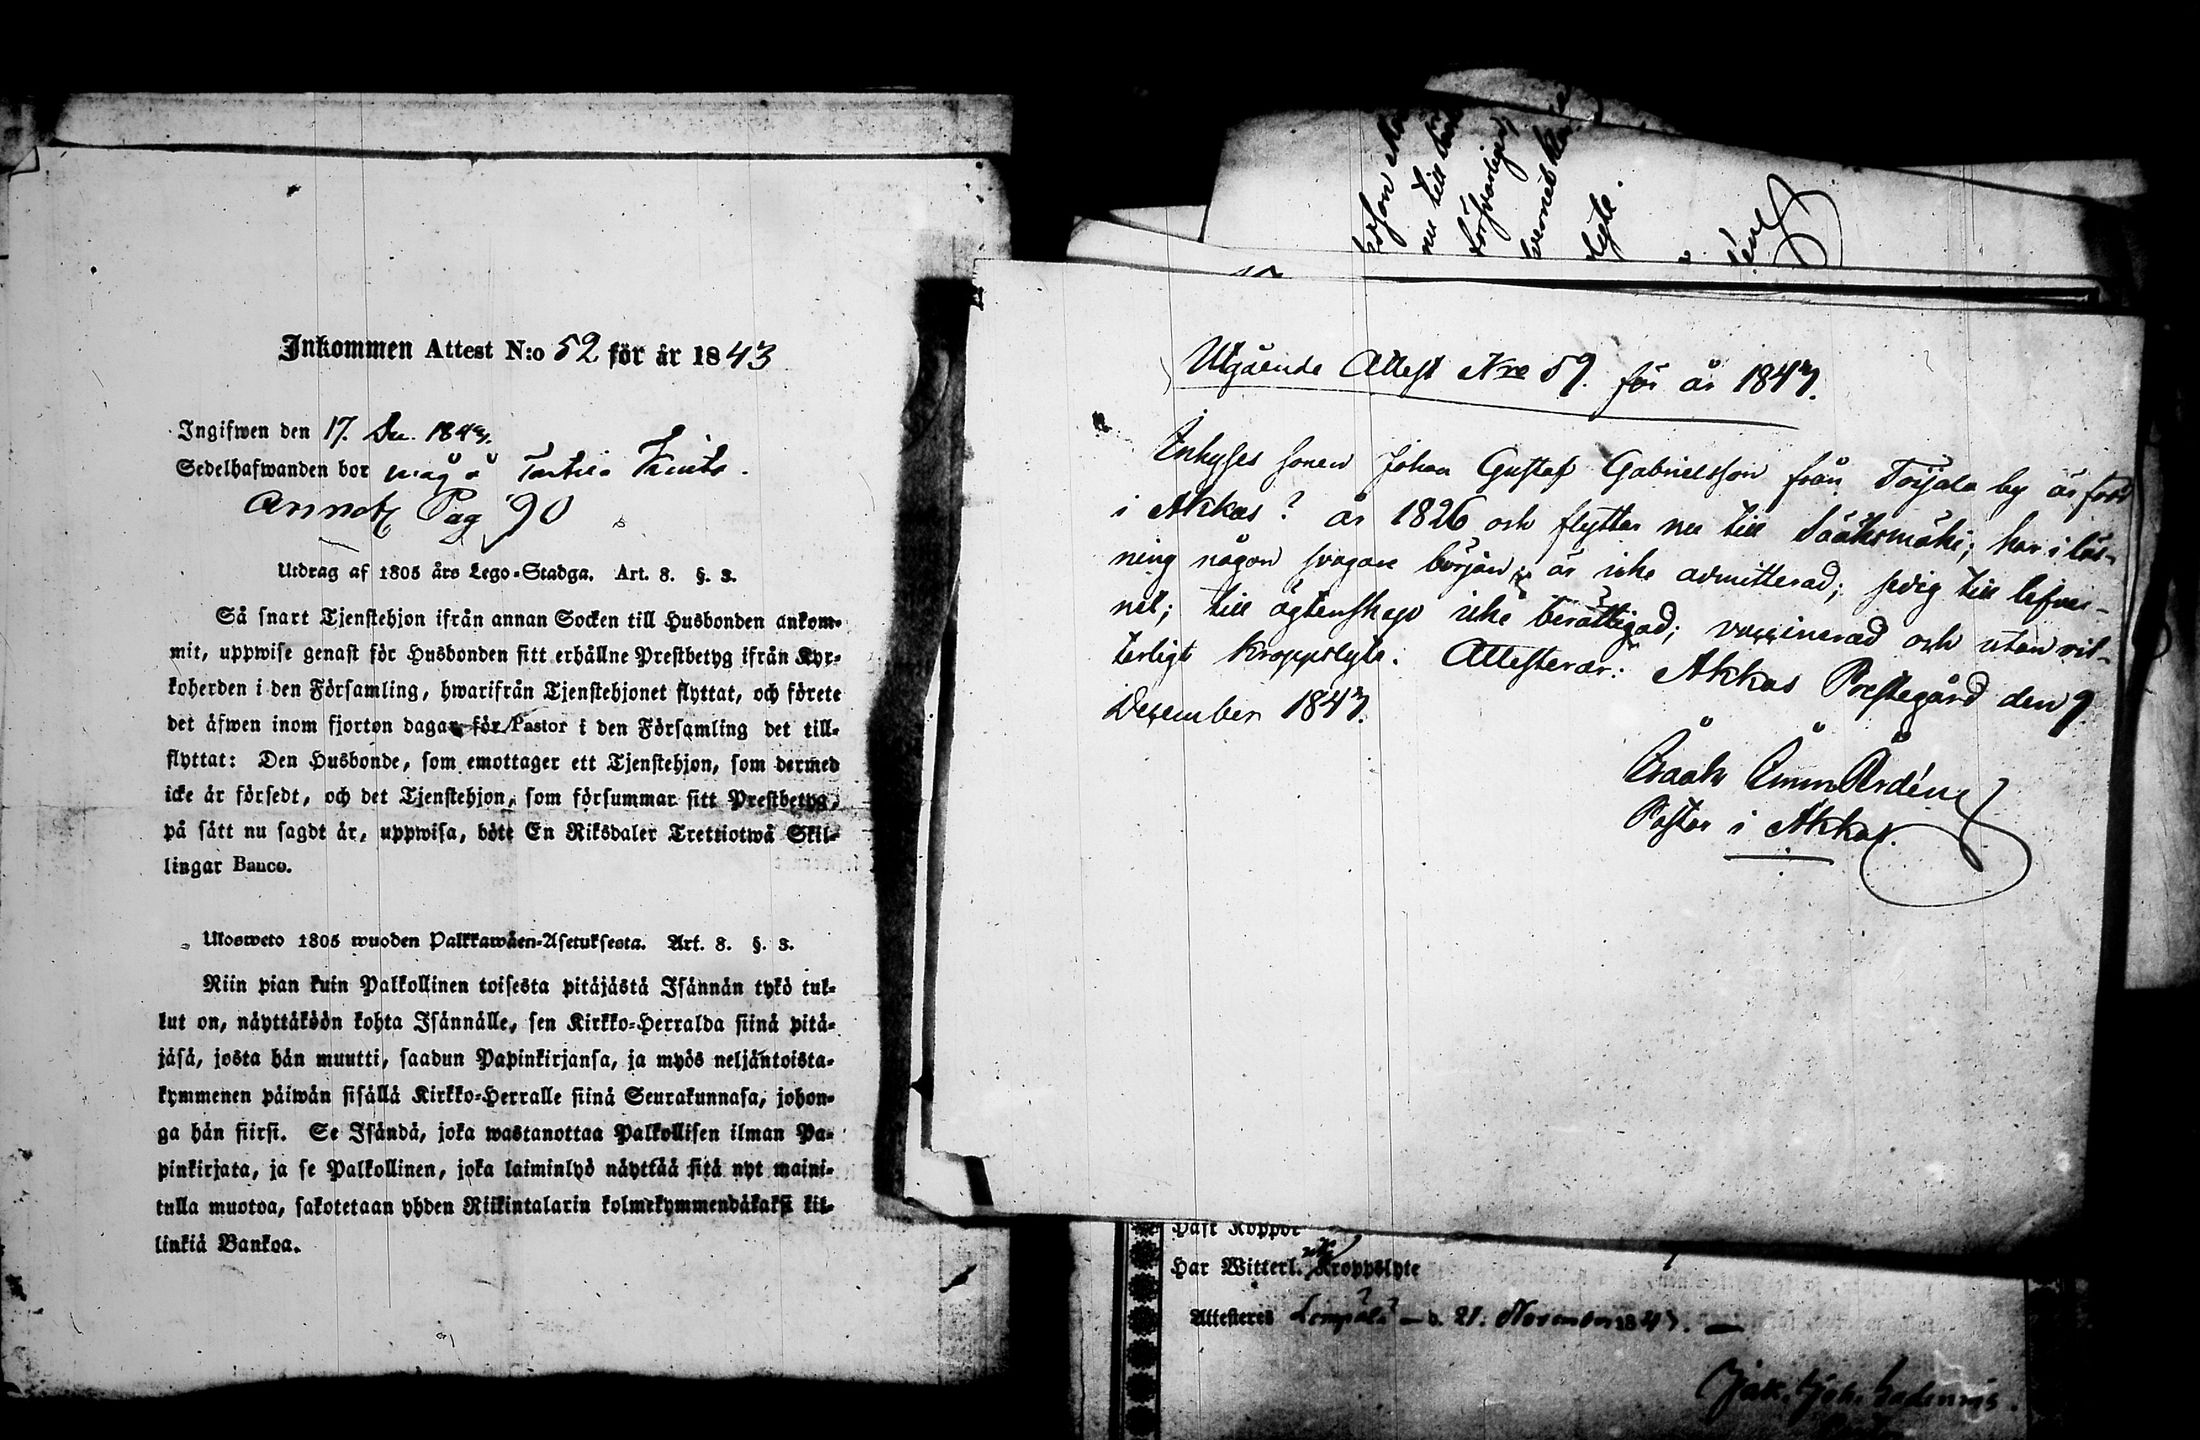 Inkommen Attest N:o 52 för år 1843
Ingifwen den 17. Dec. 1843.
Sedelhafwanden bor
Annot. Pag 90
Utdrag af 1805 års Lego-Stadga. Art. 8. §. 3.
Så snart Tjenstehjon ifrån annan Socken till Husbonden ankom-
mit, uppwise genast för Husbonden sitt erhållne Prestbetyg ifrån Kyr-
koherden i den Församling, hwarifrån Tjenstehjonet flyttat, och förete
det äfwen inom fjorton dagar för Pastor i den Församling det till-
flyttat: Den Husbonde, som emottager ett Tjenstehjon, som dermed
icke är försedt, och det Tjenstehjon, som försummar sitt Prestbetyg,
på sätt nu sagdt är, uppwisa, böte En Riksdaler Trettiotwå Skil-
lingar Banco.
Ulosweto 1805 wuoden Palkkawäen-Asetuksesta. Art. 8. §. 3.
Niin pian kuin Palkollinen toisesta pitäjästä Isännän tykö tul-
lut on, näyttäköön kohta Isännälle, sen Kirkko-Herralda siinä pitä-
jäsä, josta hän muutti, saadun Papinkirjansa, ja myös neljäntoista-
kymmenen päiwän sisällä Kirkko-Herralle siinä Seurakunnasa, johon-
ga hän siirsi. Se Isändä, joka wastanottaa Palkollisen ilman Pa-
pinkirjata, ja se Palkollinen, joka laiminlyö näyttää sitä nyt maini-
tulla muotoa, sakotetaan yhden Riikintalarin kolmekymmendäkaksi kil-
linkiä Bankoa.
nu till
lyte.
Utgående Attest Nro 59. för år 1843.
Inhyses sonen Johan Gustaf Gabrielsson från Toijala by är född
i Akkas? år 1826 och flyttar nu till Sääksmäki; har i läs-
ning någon svagare början; är icke admitterad; sedig till lefver-
net; till ägtenskap icke berättigad; vaccinerad och utan vit-
terligt kroppslyte. Attesterar: Akkas Prestegård den 9
December 1843.
Isaak Emm. Ardéns
Pastor i Akkas.
Haft Koppor
Har Witterl. Kroppslyte
Attesteres Lempälä d. 21. November 1843.